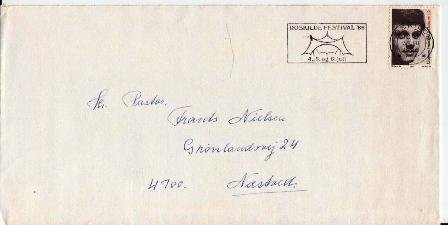 ROSKILDE FESTIVAL '86
4., 5. og 6. juli
Hr. Pastor.
Frants Nielsen
Grønlandsvej 24
4700. Næstved